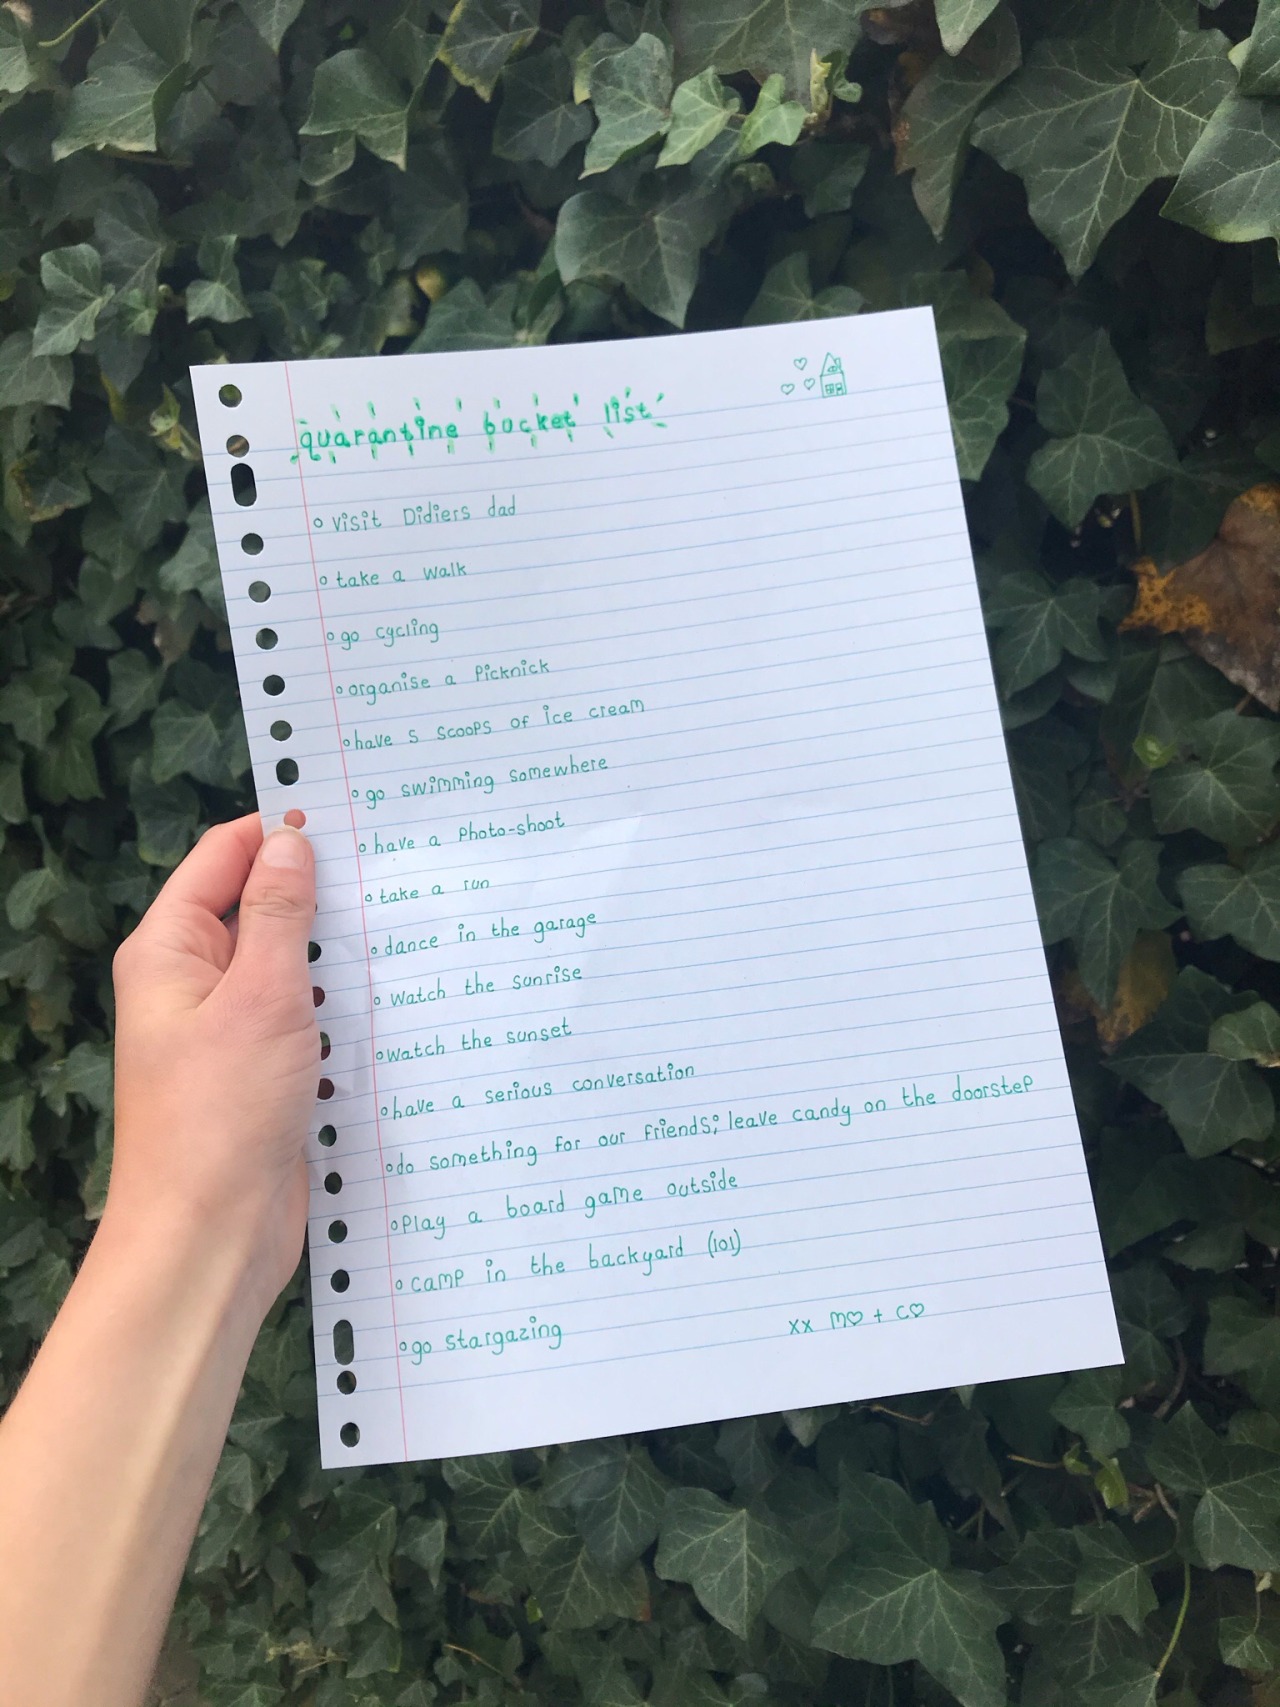 quarantine bucket list
visit Didiers dad
take a walk
go cycling
organise a picknick
have 5 scoops of ice cream
go swimming somewhere
have a photo-shoot
take a run
dance in the garage
watch the sunrise
watch the sunset
have a serious conversation
do something for our friends; leave candy on the doorstep
play a board game outside
camp in the backyard (lol)
go stargazing
xx m♡ + c♡